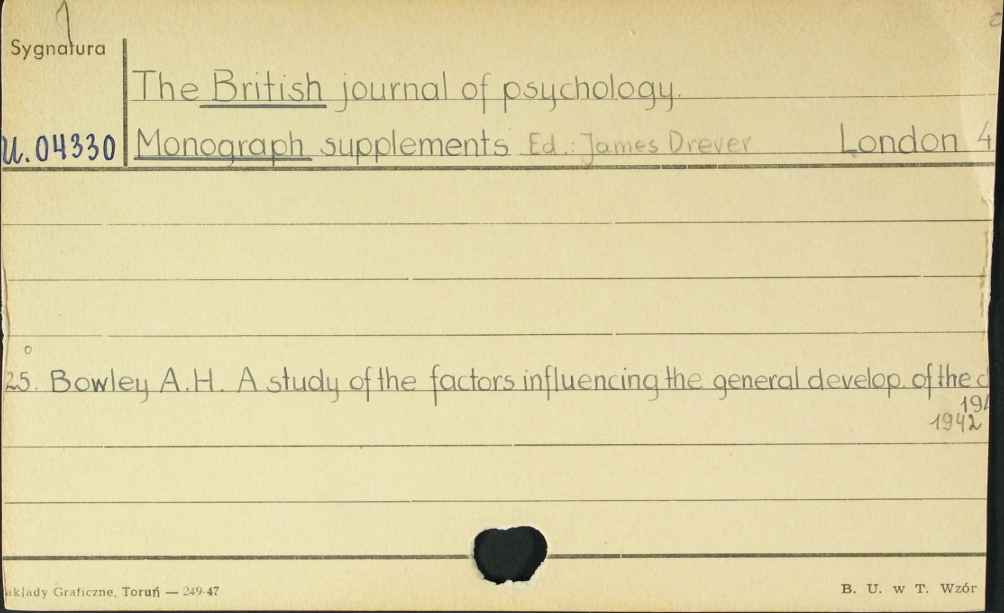 Sygnatura
The British journal of psychology.
U.04330 Monograph supplements Ed.: James Drever London 4
25. Bowley A.H. A study of the factors influencing the general develop. of the c
194
1942
akłady Graficzne, Toruń — 249-47 B. U. w T. Wzór